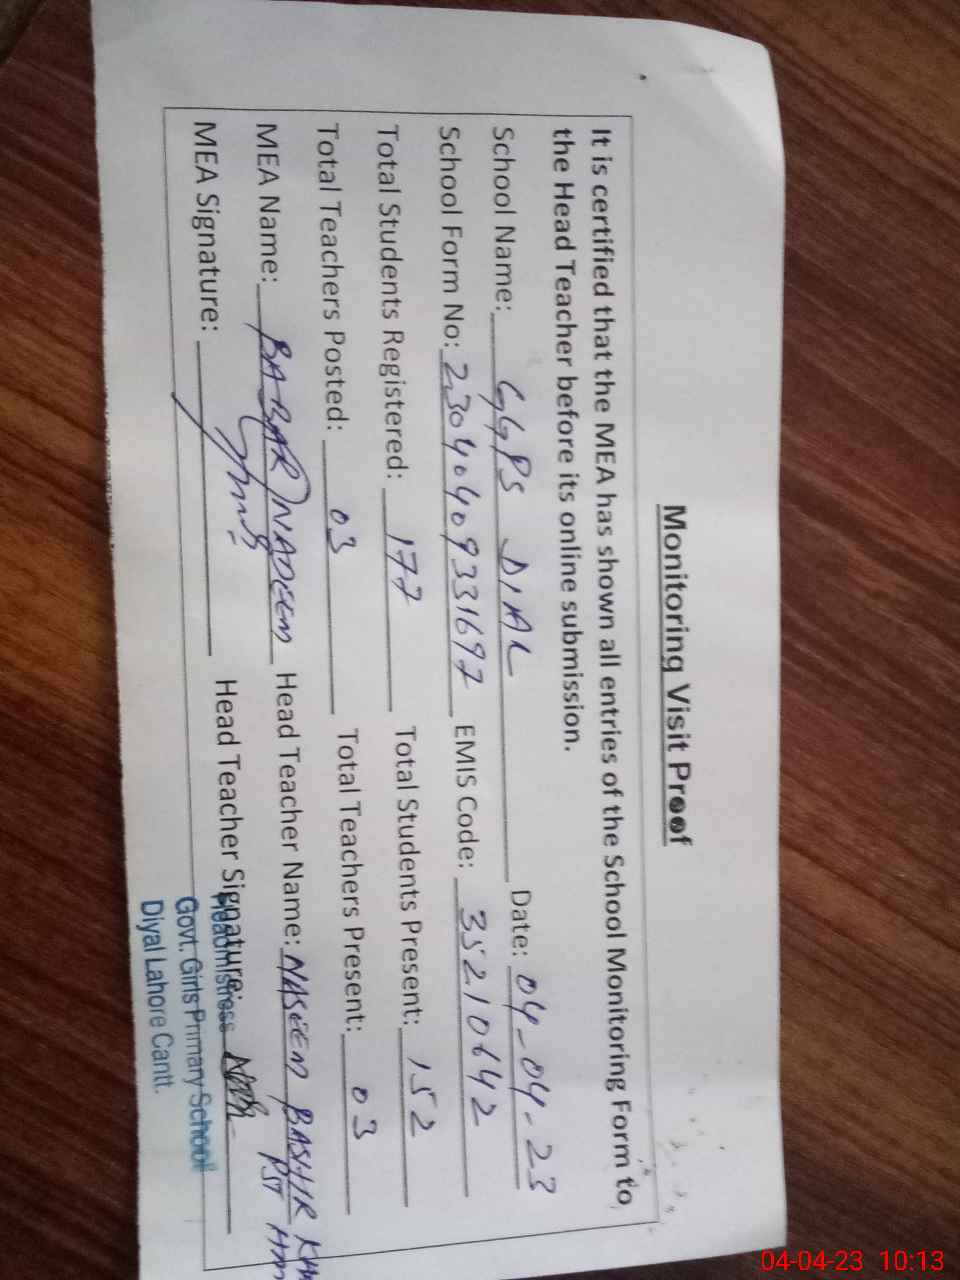 Monitoring Visit Proof
It is certified that the MEA has shown all entries of the School Monitoring Form to
the Head Teacher before its online submission.
School Name: GGPS DIAL Date: 04-04-23
School Form No: 23040409331697 EMIS Code: 35210642
Total Students Registered: 177 Total Students Present: 152
Total Teachers Posted: 03 Total Teachers Present: 03
MEA Name: BABAR NADEEM Head Teacher Name: NASEEM BASHIR
PST
MEA Signature: Head Teacher Signature:
Headmistress
Govt. Girls Primary School
Diyal Lahore Cantt.
04-04-23 10:13